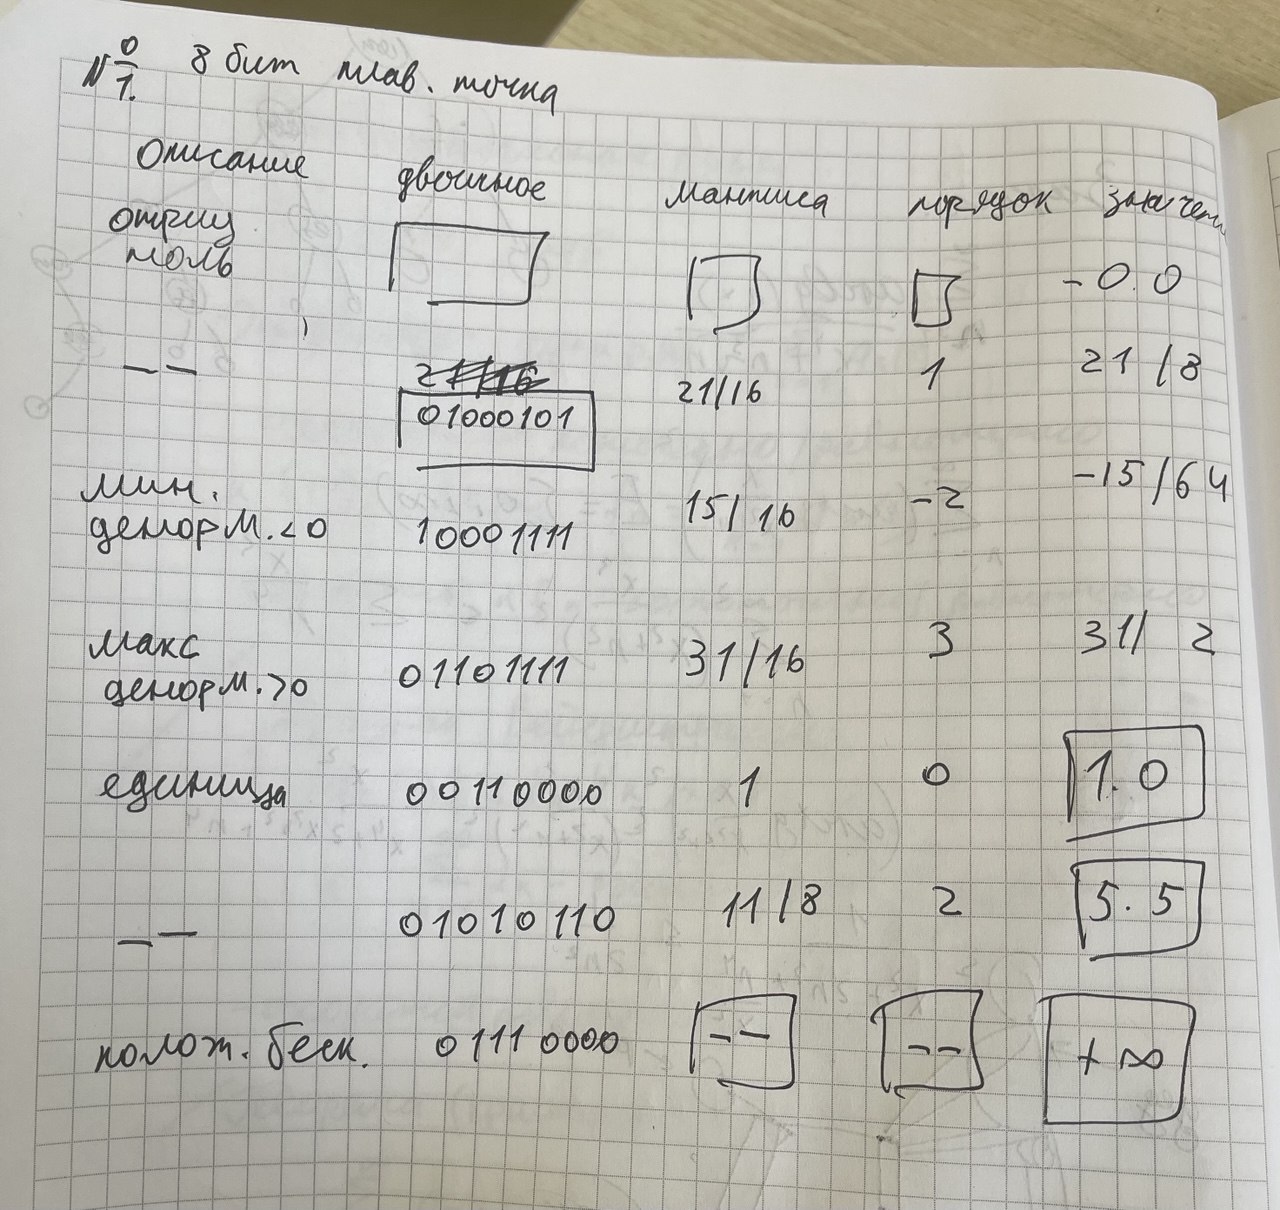 № 0/1. 8 бит плав. точка
Описание двоичное мантиса порядок значен
отриц ноль -0.0
-- 01000101 21/16 1 21/8
мин. денорм.<0 10001111 15/16 -2 -15/64
макс денорм.>0 01101111 31/16 3 31/ 2
единица 00110000 1 0 1.0
-- 01010110 11/8 2 5.5
полож. беск. 01110000 -- -- +∞